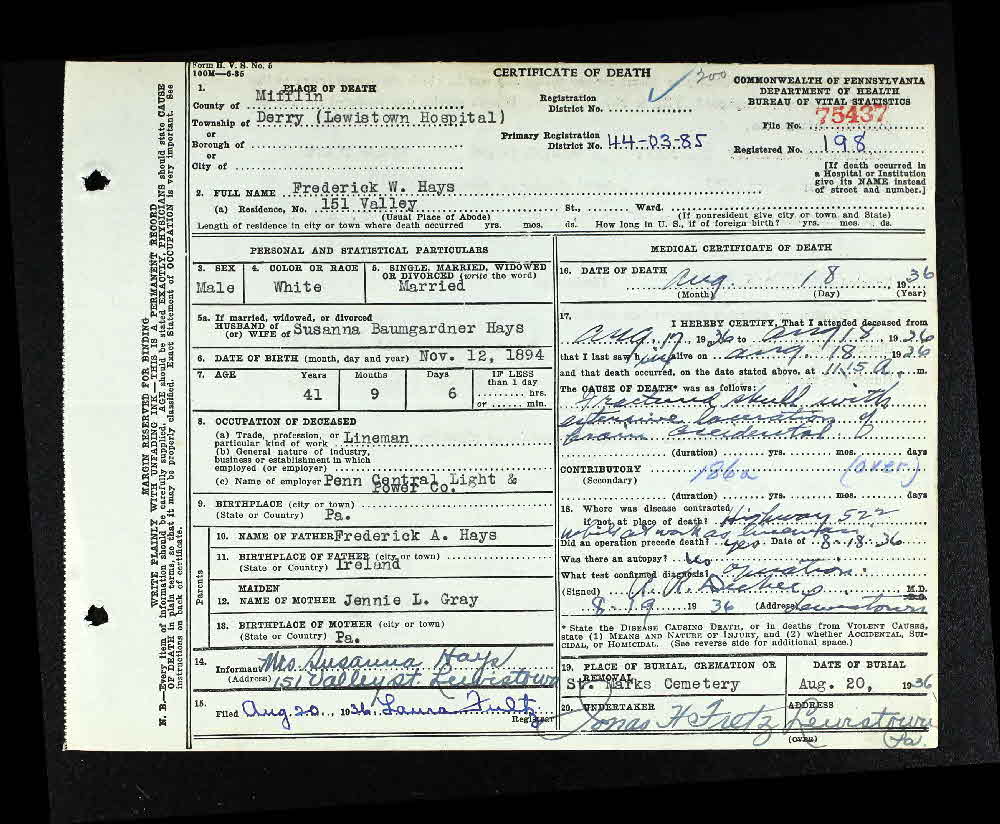 Form H. V. S. No. 5
100M—6-35
CERTIFICATE OF DEATH
200
COMMONWEALTH OF PENNSYLVANIA
DEPARTMENT OF HEALTH
BUREAU OF VITAL STATISTICS
1. PLACE OF DEATH
County of Mifflin
Registration District No.
File No. 75437
Township of Derry (Lewistown Hospital)
or
Borough of
or
City of
Primary Registration District No. 44-03-85
Registered No. 198
[If death occurred in a Hospital or Institution give its NAME instead of street and number.]
2. FULL NAME Frederick W. Hays
(a) Residence, No. 151 Valley St., Ward.
(Usual Place of Abode) (If nonresident give city or town and State)
Length of residence in city or town where death occurred yrs. mos. ds. How long in U. S., if of foreign birth? yrs. mos. ds.
PERSONAL AND STATISTICAL PARTICULARS
3. SEX Male
4. COLOR OR RACE White
5. SINGLE, MARRIED, WIDOWED OR DIVORCED (write the word) Married
5a. If married, widowed, or divorced
HUSBAND of
(or) WIFE of Susanna Baumgardner Hays
6. DATE OF BIRTH (month, day and year) Nov. 12, 1894
7. AGE Years 41 Months 9 Days 6 IF LESS than 1 day hrs. or min.
8. OCCUPATION OF DECEASED
(a) Trade, profession, or particular kind of work Lineman
(b) General nature of industry, business or establishment in which employed (or employer)
(c) Name of employer Penn Central Light & Power Co.
9. BIRTHPLACE (city or town)
(State or Country) Pa.
Parents
10. NAME OF FATHER Frederick A. Hays
11. BIRTHPLACE OF FATHER (city or town)
(State or Country) Ireland
12. MAIDEN NAME OF MOTHER Jennie L. Gray
13. BIRTHPLACE OF MOTHER (city or town)
(State or Country) Pa.
14. Informant Mrs Susanna Hays
(Address) 151 Valley St. Lewistown
15. Filed Aug. 20, 1936 Laura Fultz
Registrar
MEDICAL CERTIFICATE OF DEATH
16. DATE OF DEATH Aug. 18 1936
(Month) (Day) (Year)
17. I HEREBY CERTIFY, That I attended deceased from
Aug. 17, 1936 to Aug. 18, 1936
that I last saw him alive on Aug. 18, 1936
and that death occurred, on the date stated above, at 11.15 A. m.
The CAUSE OF DEATH* was as follows:
Fractured skull with
extensive laceration of
brain accidental
(duration) yrs. mos. days
CONTRIBUTORY 186a (over)
(Secondary)
(duration) yrs. mos. days
18. Where was disease contracted
if not at place of death? Highway 522
while at work as lineman
Did an operation precede death? yes Date of 8-18-36
Was there an autopsy? No
What test confirmed diagnosis? Operation
(Signed) M.D.
8-19 1936 (Address) Lewistown
* State the DISEASE CAUSING DEATH, or in deaths from VIOLENT CAUSES, state (1) MEANS AND NATURE OF INJURY, and (2) whether ACCIDENTAL, SUICIDAL, or HOMICIDAL. (See reverse side for additional space.)
19. PLACE OF BURIAL, CREMATION OR REMOVAL
St. Marks Cemetery
DATE OF BURIAL
Aug. 20, 1936
20. UNDERTAKER
Jonas H Fretz
ADDRESS
Lewistown Pa.
(OVER)
MARGIN RESERVED FOR BINDING
WRITE PLAINLY WITH UNFADING INK—THIS IS A PERMANENT RECORD
N. B.—Every item of information should be carefully supplied. AGE should be stated EXACTLY. PHYSICIANS should state CAUSE
OF DEATH in plain terms, so that it may be properly classified. Exact Statement of OCCUPATION is very important. See
instructions on back of certificate.